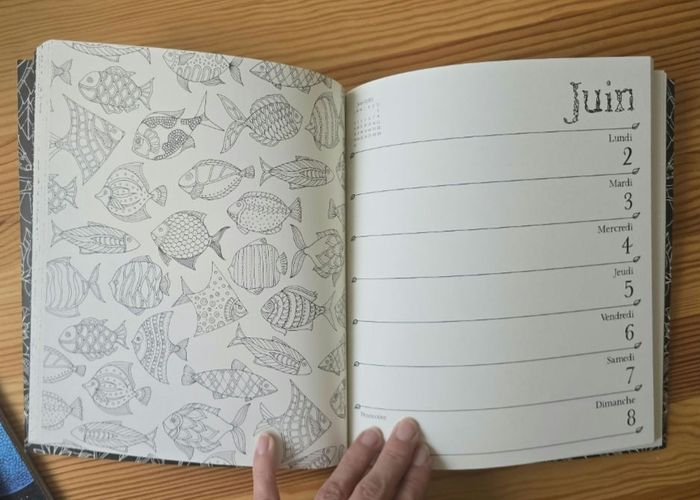 Juin
Lundi
2
Mardi
3
Mercredi
4
Jeudi
5
Vendredi
6
Samedi
7
Dimanche
8
Pentecôte